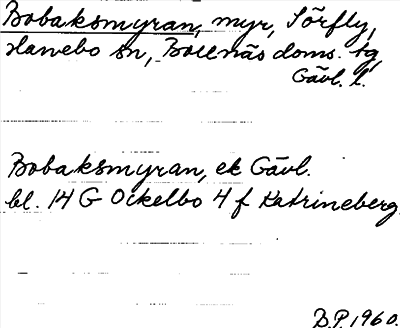 Bobaksmyran, myr, Sörfly,
Hanebo sn, Bollnäs doms. tg,
Gävl. l.
Bobaksmyran, ek Gävl.
bl. 14 G Ockelbo 4 f Katrineberg.
B.P. 1960.